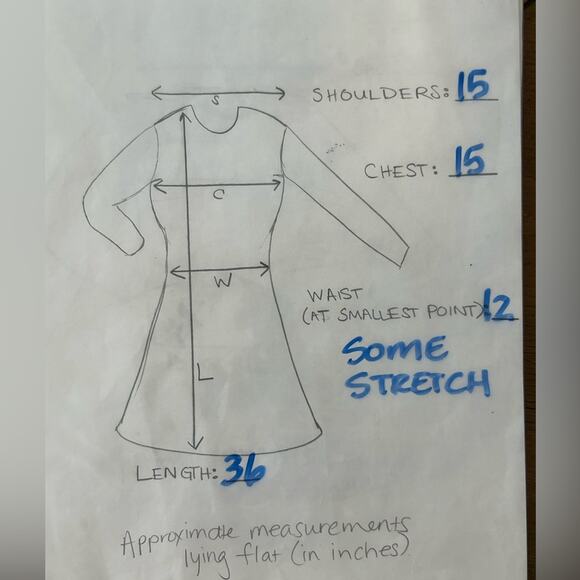 S
SHOULDERS: 15
CHEST: 15
C
W
WAIST
(AT SMALLEST POINT): 12
SOME
STRETCH
L
LENGTH: 36
Approximate measurements
lying flat (in inches)